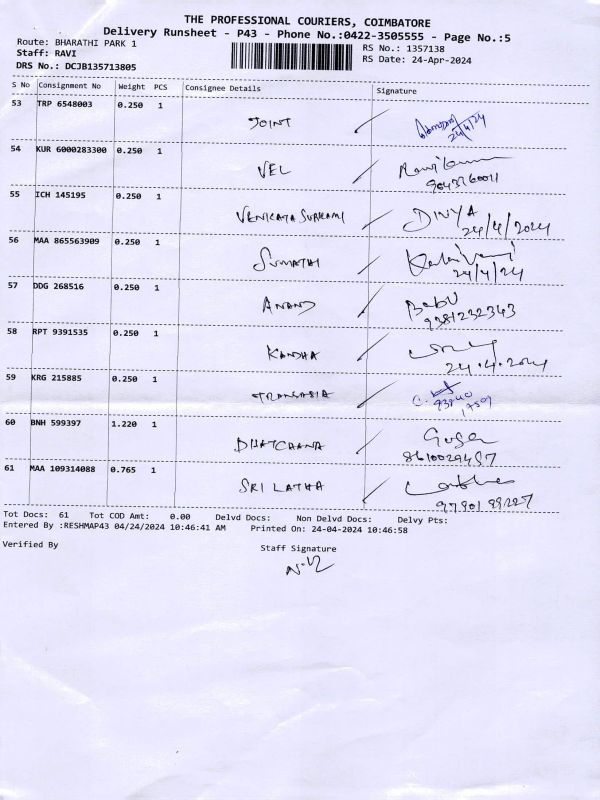 THE PROFESSIONAL COURIERS, COIMBATORE
Delivery Runsheet - P43 - Phone No.:0422-3505555 - Page No.:5
Route: BHARATHI PARK 1 RS No.: 1357138
Staff: RAVI RS Date: 24-Apr-2024
DRS No.: DCJB135713805
S No Consignment No Weight PCS Consignee Details Signature
53 TRP 6548003 0.250 1 JOINT 24/4/24
54 KUR 6000283300 0.250 1 VEL
9043760011
55 ICH 145195 0.250 1 DIVYA
24/4/2024
56 MAA 865563909 0.250 1 SUMATHI
24/4/24
57 DDG 268516 0.250 1 ANAND Babu
9381232343
58 RPT 9391535 0.250 1 KANDHA
24.4.2024
59 KRG 215885 0.250 1 TRANSASIA
60 BNH 599397 1.220 1
8610029457
61 MAA 109314088 0.765 1 SRI LATHA
Tot Docs: 61 Tot COD Amt: 0.00 Delvd Docs: Non Delvd Docs: Delvy Pts:
Entered By :RESHMAP43 04/24/2024 10:46:41 AM Printed On: 24-04-2024 10:46:58
Verified By Staff Signature